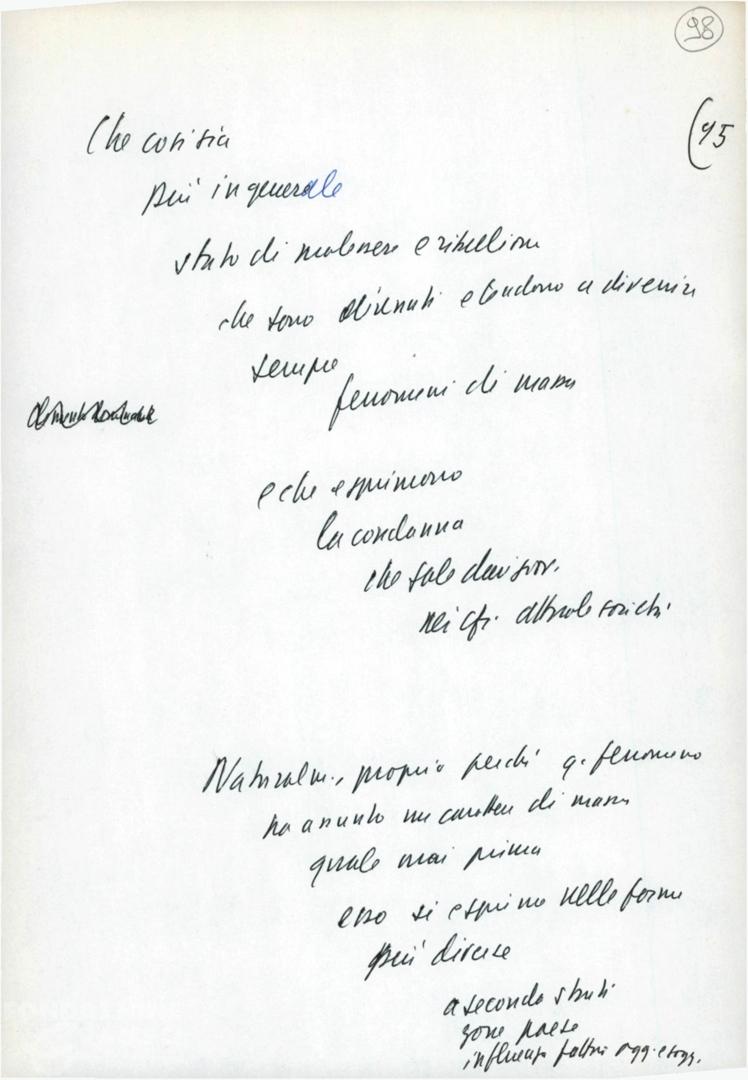 98
(45
Che cos'è sia
più in generale
stato di malessere e ribellione
che sono divenuti e tendono a divenire
sempre
fenomeni di massa
e che esprimono
la condanna
che sale dai giov.
nei cfr. attuale società
Naturalm., proprio perché q. fenomeno
ha assunto un carattere di massa
quale mai prima
esso si esprime nelle forme
più diverse
a seconda strati
zone paese
influenza fattori ogg. e sogg.